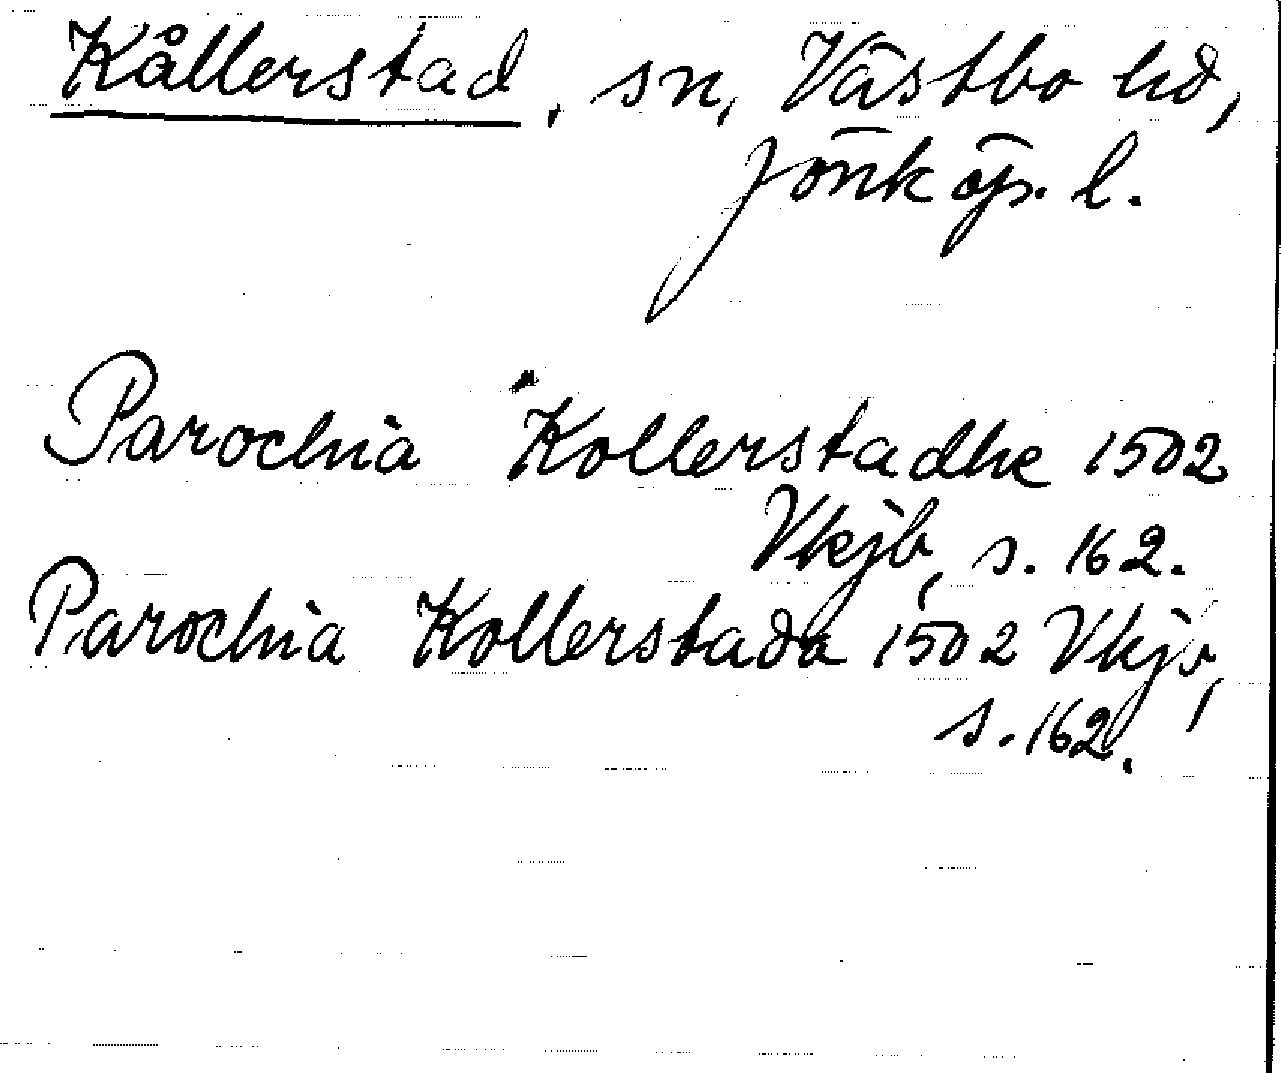 Kållerstad, sn, Västbo hd,
Jönköp. l.
Parochia Kollerstadhe 1502
Vkjb, s. 162.
Parochia Kollerstada 1502 Vkjb,
s. 162.